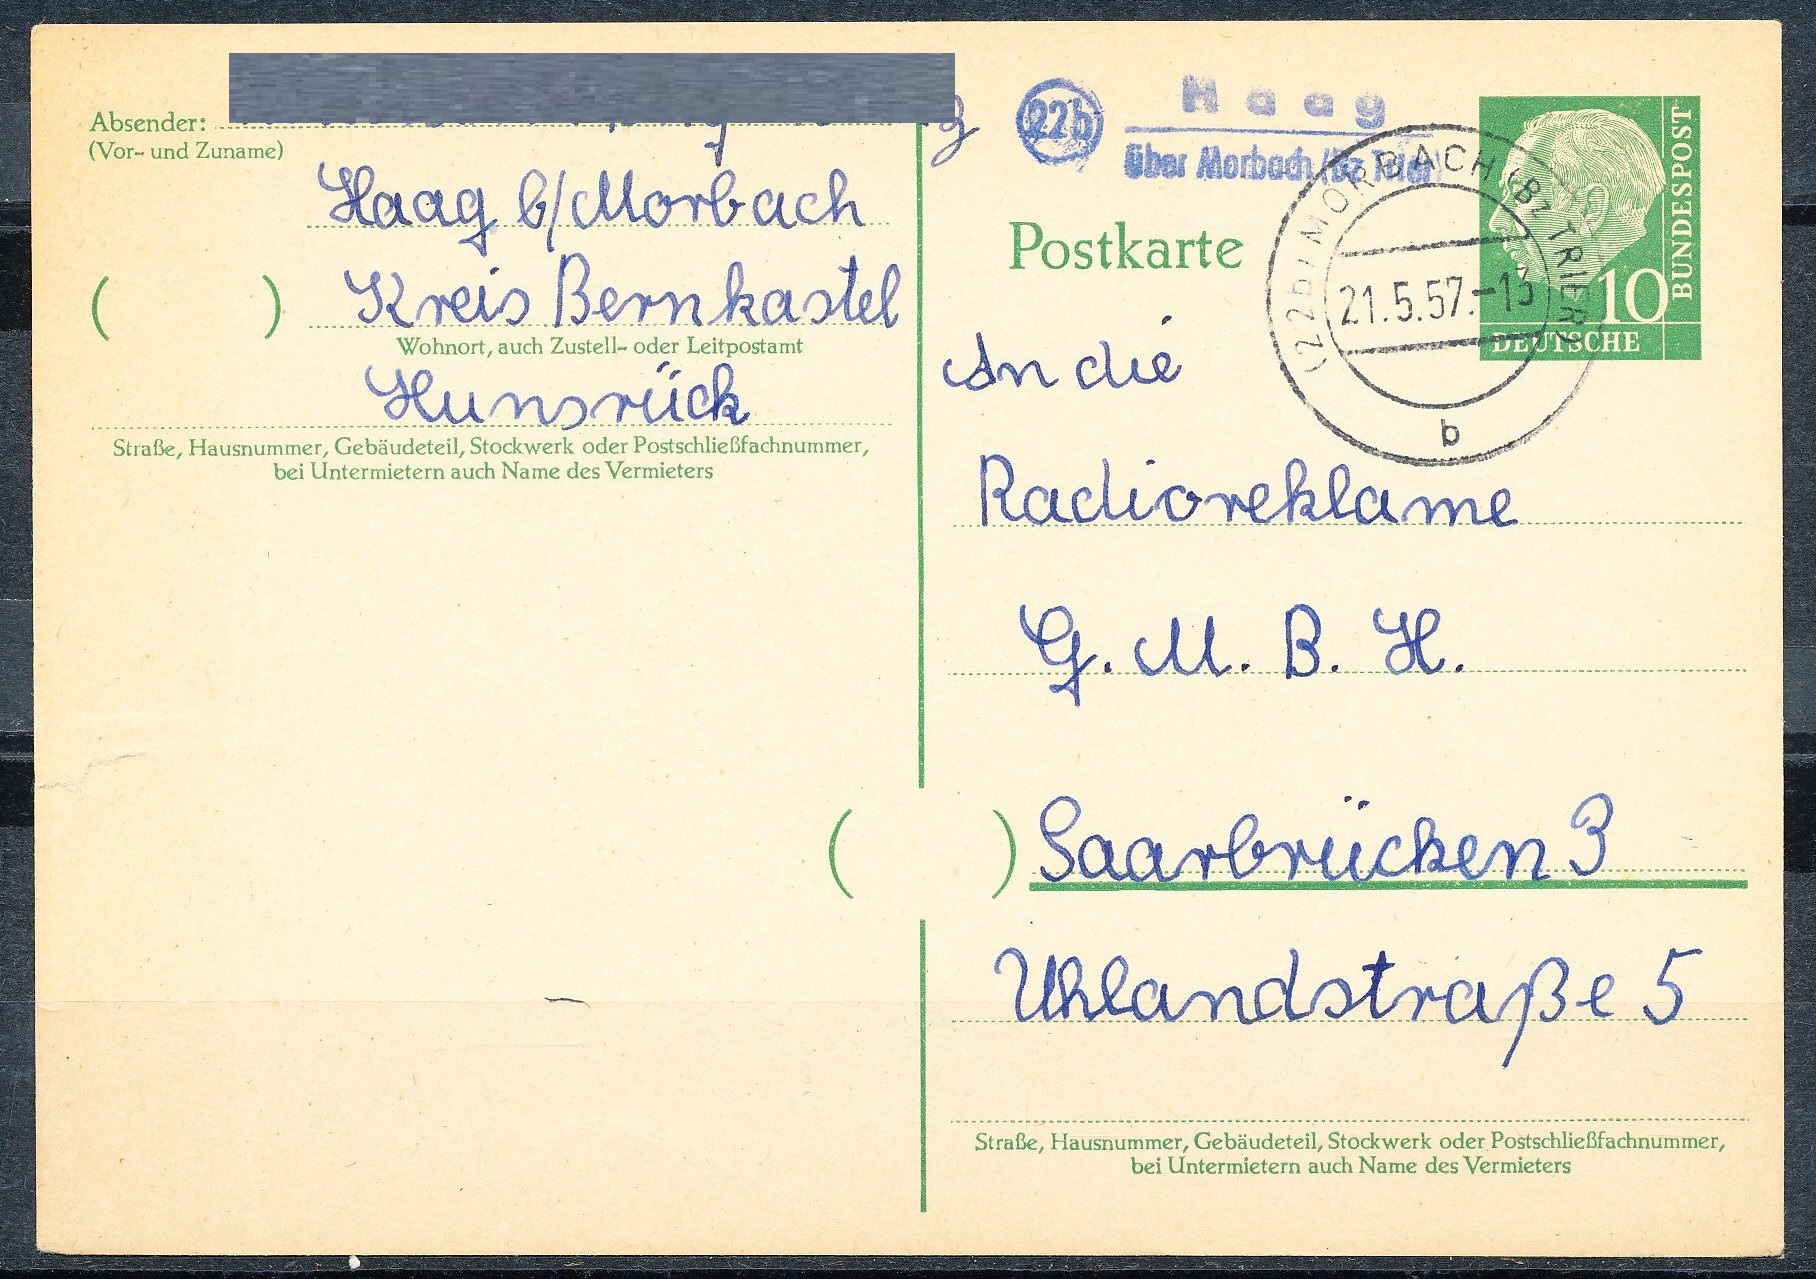 Absender:
(Vor- und Zuname)
Haag b/Morbach
( ) Kreis Bernkastel
Wohnort, auch Zustell- oder Leitpostamt
Hunsrück
Straße, Hausnummer, Gebäudeteil, Stockwerk oder Postschließfachnummer,
bei Untermietern auch Name des Vermieters
22b
Haag
über Morbach (Bz Trier)
Postkarte
(22b) MORBACH (Bz TRIER)
21.5.57.-13
b
10
BUNDESPOST
DEUTSCHE
An die
Radioreklame
G. M. B. H.
( ) Saarbrücken 3
Uhlandstraße 5
Straße, Hausnummer, Gebäudeteil, Stockwerk oder Postschließfachnummer,
bei Untermietern auch Name des Vermieters